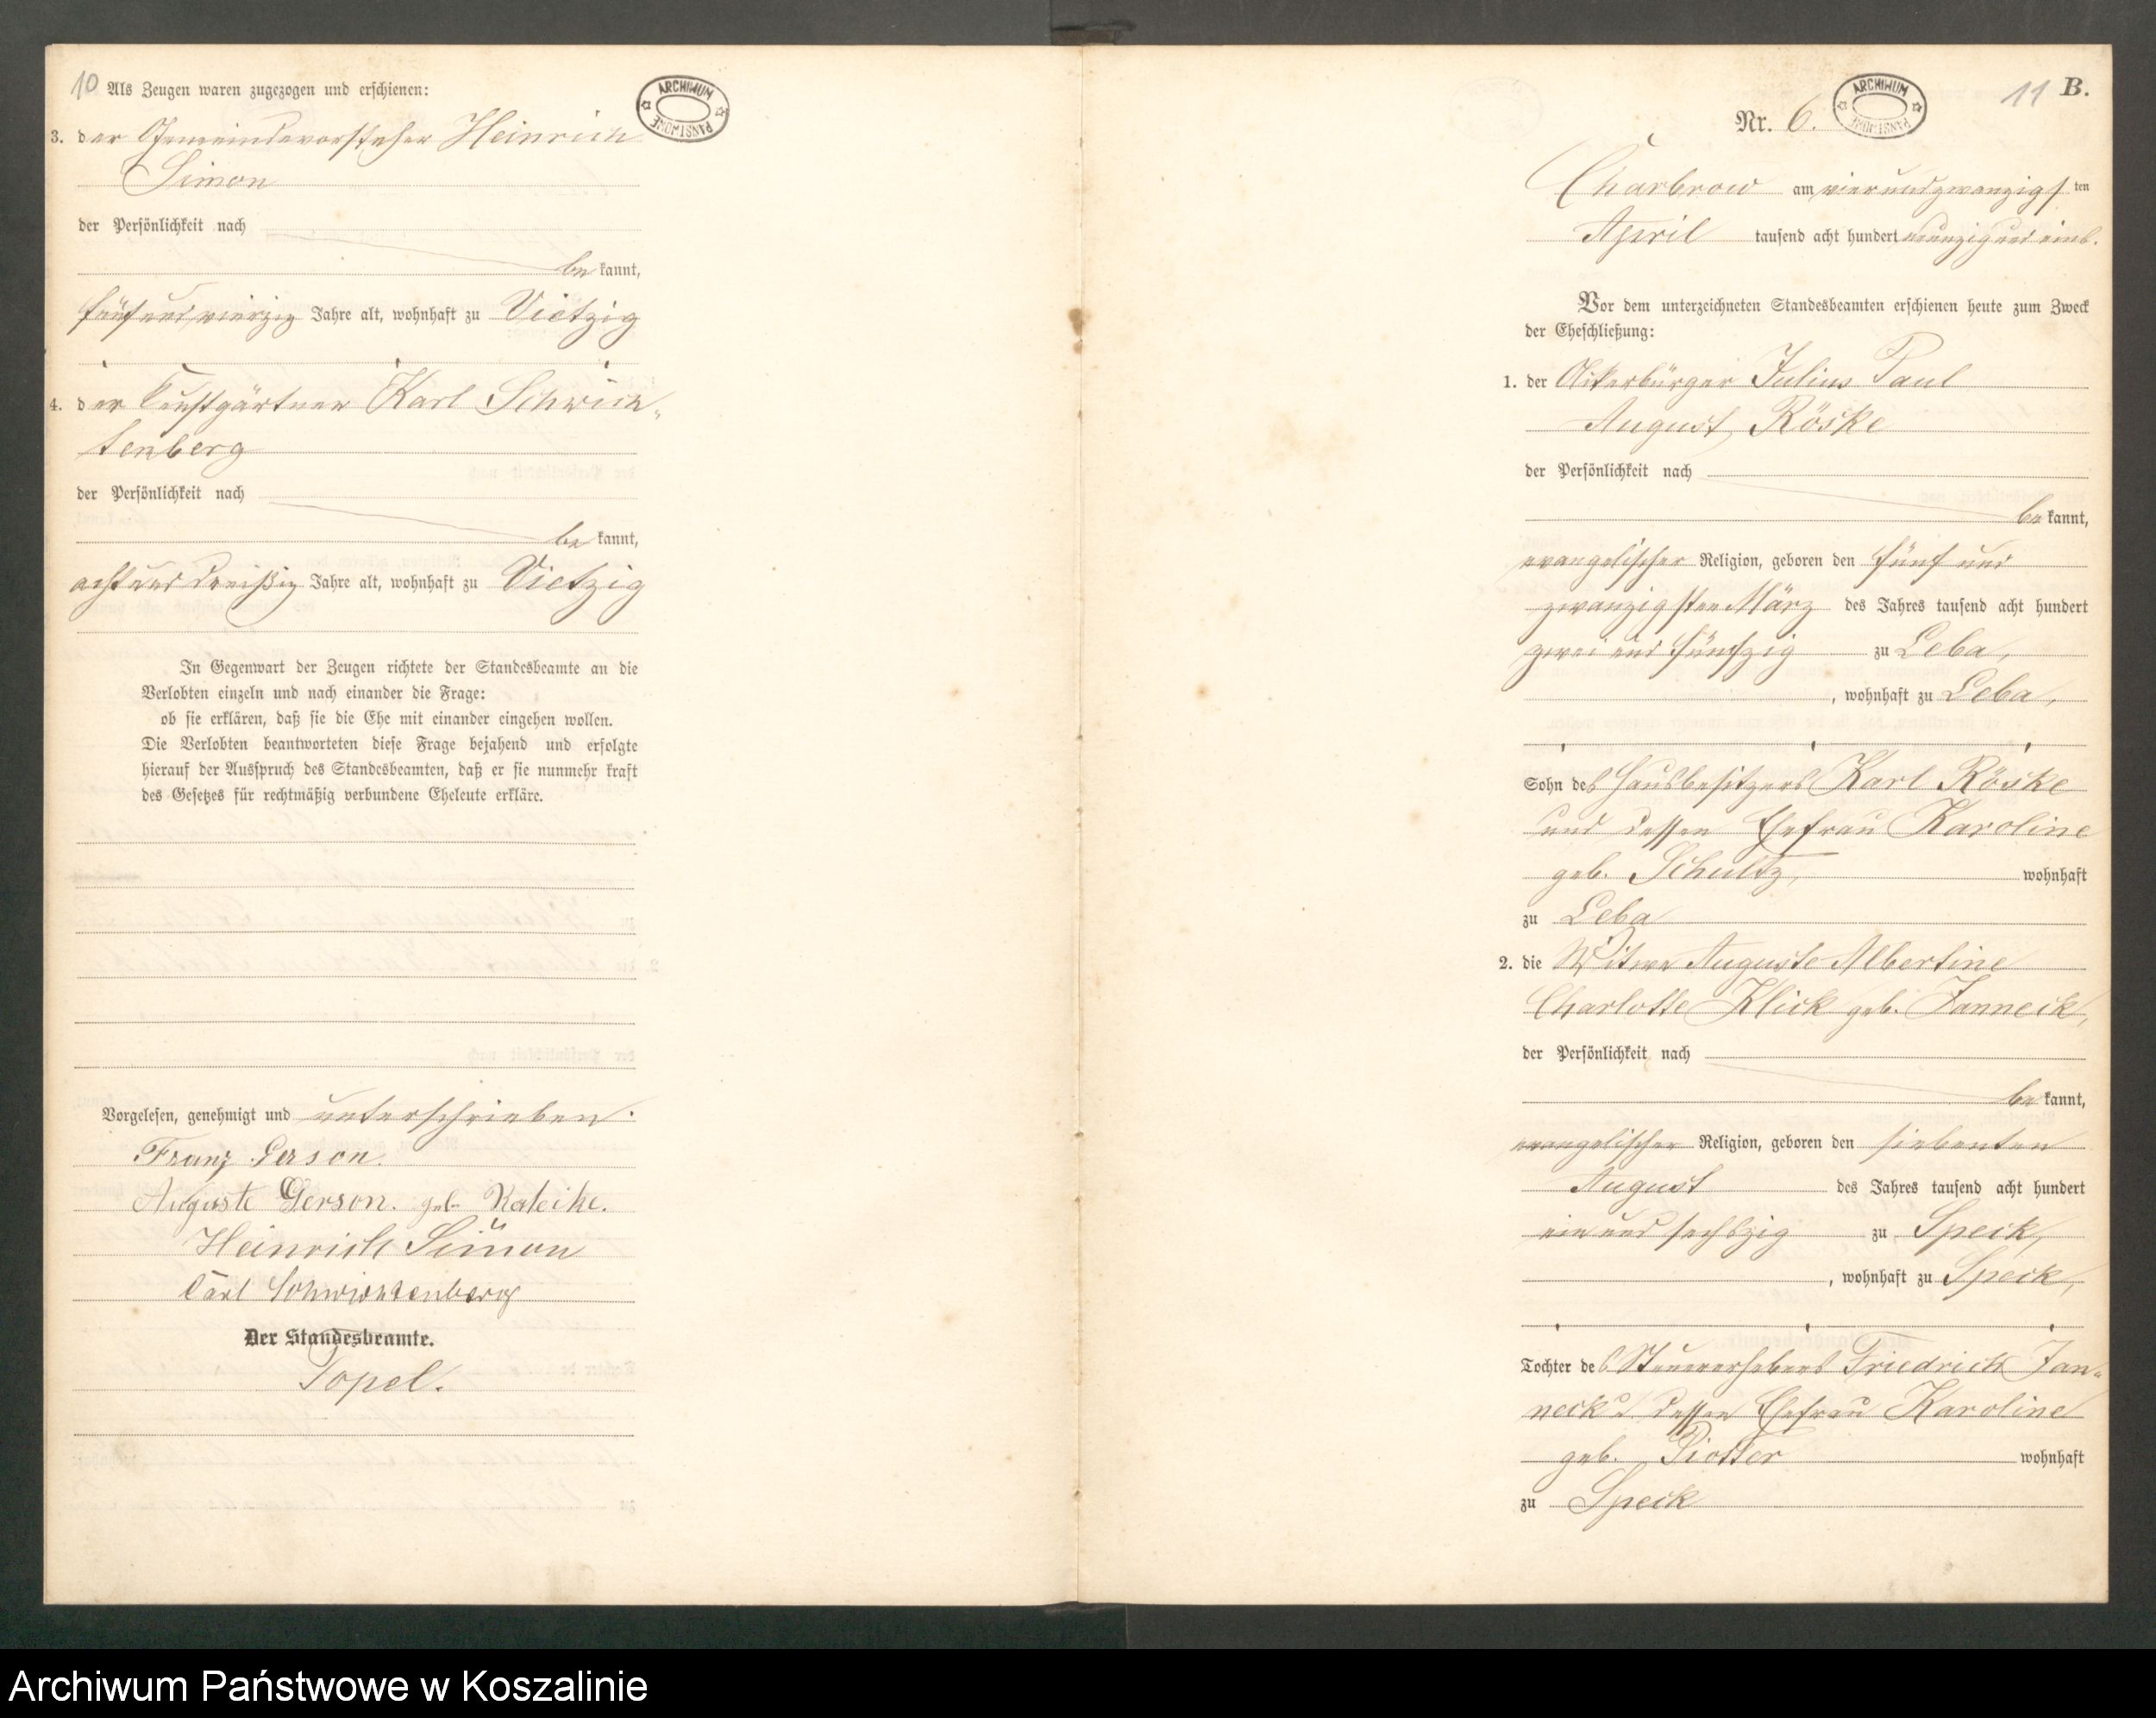 10 Als Zeugen waren zugezogen und erschienen:
ARCHIWUM PAŃSTWOWE
3. der Gemeindevorsteher Heinrich
Simon
der Persönlichkeit nach
bekannt,
fünf und vierzig Jahre alt, wohnhaft zu Vietzig
4. der Kunstgärtner Karl Schwich-
tenberg
der Persönlichkeit nach
bekannt,
acht und dreißig Jahre alt, wohnhaft zu Vietzig
In Gegenwart der Zeugen richtete der Standesbeamte an die
Verlobten einzeln und nach einander die Frage:
ob sie erklären, daß sie die Ehe mit einander eingehen wollen.
Die Verlobten beantworteten diese Frage bejahend und erfolgte
hierauf der Ausspruch des Standesbeamten, daß er sie nunmehr kraft
des Gesetzes für rechtmäßig verbundene Eheleute erkläre.
Vorgelesen, genehmigt und unterschrieben.
Franz Gerson.
Auguste Gerson. geb. Rateike.
Heinrich Simon
Carl Schwichtenberg
Der Standesbeamte.
Topel.
11 B.
Nr. 6.
ARCHIWUM PAŃSTWOWE
Charbrow am vier und zwanzigsten
April tausend acht hundert neunzig und eins.
Vor dem unterzeichneten Standesbeamten erschienen heute zum Zweck
der Eheschließung:
1. der Ackerbürger Julius Paul
August Röske
der Persönlichkeit nach
bekannt,
evangelischer Religion, geboren den fünf und
zwanzigsten März des Jahres tausend acht hundert
zwei und fünfzig zu Leba,
, wohnhaft zu Leba,
Sohn des Hausbesitzers Karl Röske
und dessen Ehefrau Karoline
geb. Schultz, wohnhaft
zu Leba
2. die Witwe Auguste Albertine
Charlotte Klick geb. Janneck,
der Persönlichkeit nach
bekannt,
evangelischer Religion, geboren den siebenten
August des Jahres tausend acht hundert
ein und sechszig zu Speck,
, wohnhaft zu Speck,
Tochter des Steuererhebers Friedrich Jan-
neck u. dessen Ehefrau Karoline
geb. Piotter wohnhaft
zu Speck
Archiwum Państwowe w Koszalinie